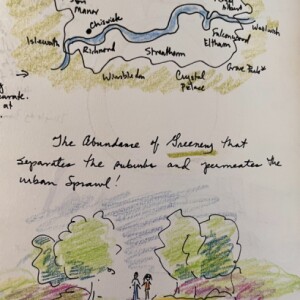 Manor
Chiswick
Woolwich
Isleworth
Richmond
Streatham
Falconwood
Eltham
Wimbledon
Crystal
Palace
Grove Park
at
The Abundance of Greenery that
separates the suburbs and permeates the
urban Sprawl!